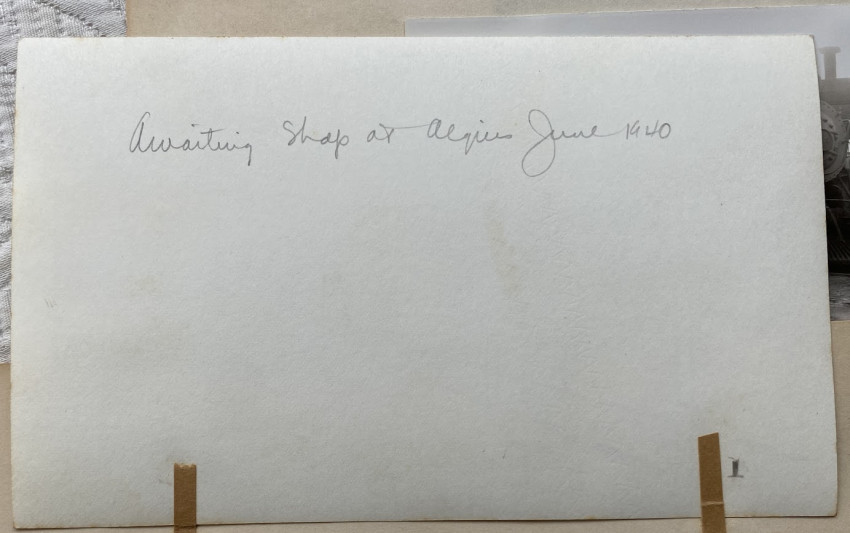 Awaiting Shop at Algiers June 1940
1